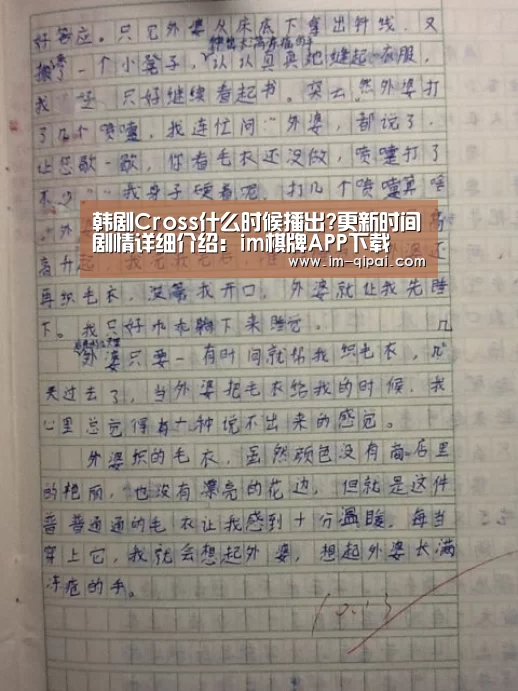 好答应。只见外婆从床底下拿出针线,又
伸出长满冻疮的手
搬了一个小凳子,认认真真地缝起衣服,
我 只好继续看起书。突然外婆打
了几个喷嚏,我连忙问:“外婆,都说了,
让您歇一歇,你看毛衣还没做,喷嚏打了
不少”“我身子硬着呢,打几个喷嚏算啥
“外
韩剧Cross什么时候播出?更新时间
剧情详细介绍:im棋牌APP下载
www.im-qipai.com
高升起,
再织毛衣,没等我开口,外婆就让我先睡
下。我只好乖乖躺下来睡觉。
外婆只要一有时间就帮我织毛衣,几
天过去了,当外婆把毛衣给我的时候,我
心里总觉得有十种说不出来的感觉。
外婆织的毛衣,虽然颜色没有商店里
的艳丽,也没有漂亮的花边,但就是这件
普普通通的毛衣让我感到十分温暖,每当
穿上它,我就会想起外婆,想起外婆长满
冻疮的手。
10.13